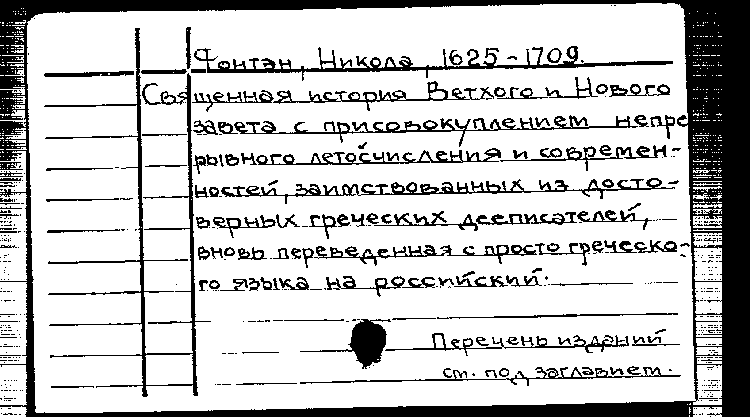 Фонтан, Никола, 1625-1709.
Священная история Ветхого и Нового
завета с присовокуплением непре
рывного летосчисления и современ-
ностей, заимствованных из досто-
верных греческих дееписателей,
вновь переведенная с просто греческо-
го языка на российский.
Перечень изданий
см. под заглавием.